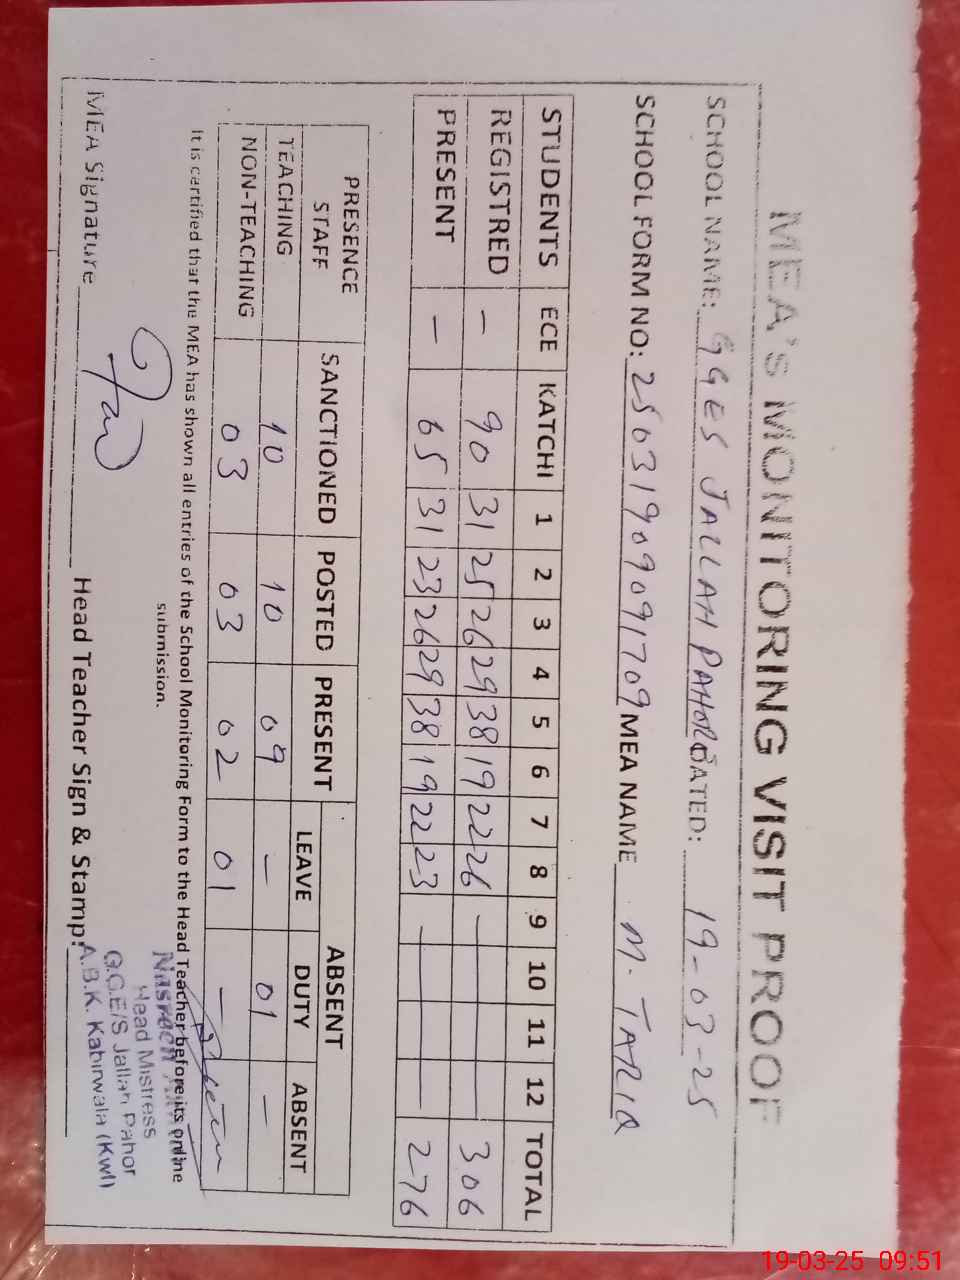 MEA's MONITORING VISIT PROOF
SCHOOL NAME: GGES JALLAH PAHOR DATED: 19-03-25
SCHOOL FORM NO: 25031909091709 MEA NAME M. TARIQ
STUDENTS ECE KATCHI 1 2 3 4 5 6 7 8 9 10 11 12 TOTAL
REGISTRED — 90 31 25 26 29 38 19 22 26 — 306
PRESENT — 65 31 23 26 29 38 19 22 23 — 276
PRESENCE STAFF SANCTIONED POSTED PRESENT ABSENT
LEAVE DUTY ABSENT
TEACHING 10 10 09 — 01 —
NON-TEACHING 03 03 02 01 —
It is certified that the MEA has shown all entries of the School Monitoring Form to the Head Teacher before its online
submission.
MEA Signature Head Teacher Sign & Stamp:
Nasreen
Head Mistress
G.G.E/S Jallah Pahor
A.B.K. Kabirwala (Kwl)
19-03-25 09:51